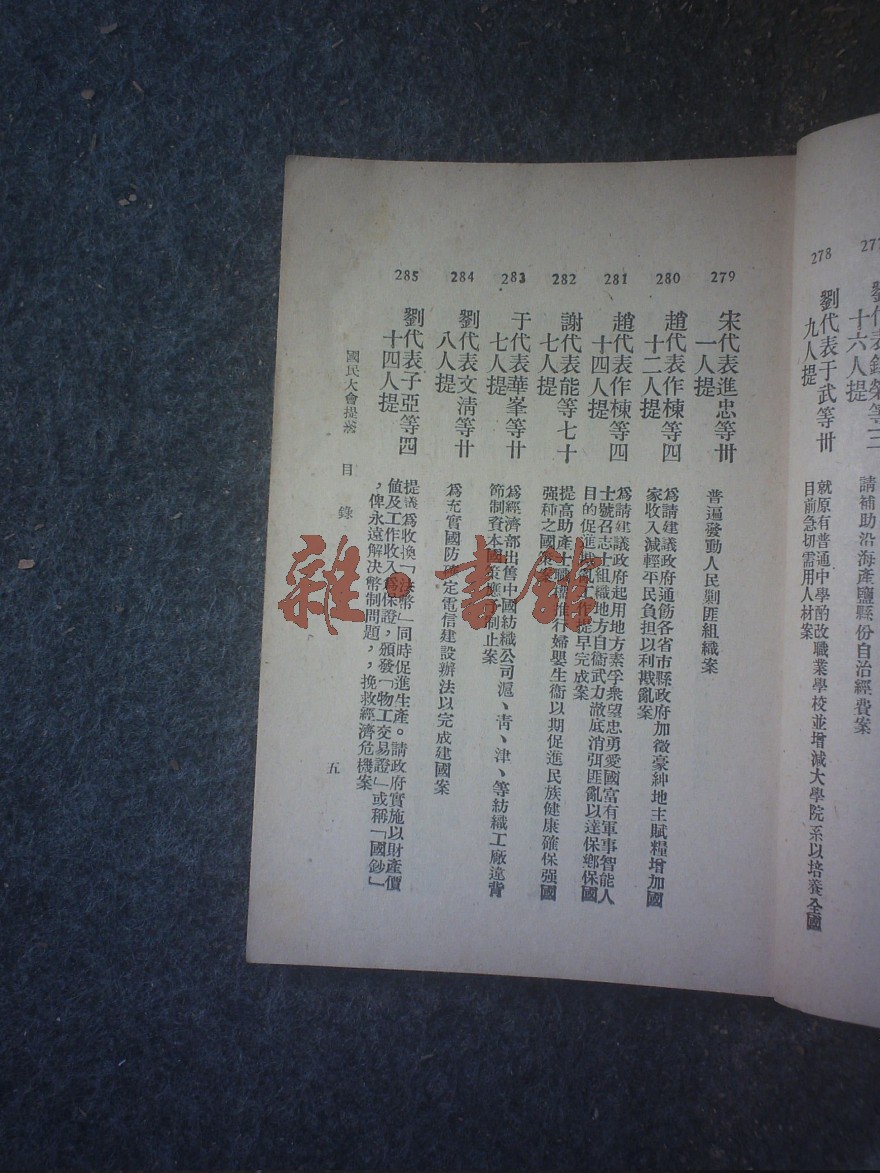 277
十六人提
請補助沿海產鹽縣份自治經費案
278
劉代表于武等卅
九人提
就原有普通中學酌改職業學校並增減大學院系以培養全國
目前急切需用人材案
279
宋代表進忠等卅
一人提
普遍發動人民剿匪組織案
280
趙代表作棟等四
十二人提
為請建議政府通飭各省市縣政府加徵豪紳地主賦糧增加國
家收入減輕平民負担以利戡亂案
281
趙代表作棟等四
十四人提
為請建議政府起用地方素孚衆望忠勇愛國富有軍事智能人
士號召志士組織地方自衞武力澈底消弭匪亂以達保鄉保國
目的促進戡亂工作提早完成案
282
謝代表能等七十
七人提
提高助產士職權推行婦嬰生衞以期促進民族健康確保强國
强種之國策案
283
于代表華峯等廿
七人提
為經濟部出售中國紡織公司滬、青、津、等紡織工廠違背
節制資本國策應予制止案
284
劉代表文清等廿
八人提
為充實國防確定電信建設辦法以完成建國案
285
劉代表子亞等四
十四人提
提議為收換「法幣」同時促進生產。請政府實施以財產價
值及工作收入為保證，頒發「物工交易證」或稱「國鈔」
，俾永遠解决幣制問題，，挽救經濟危機案
國民大會提案 目錄 五
雜·書館